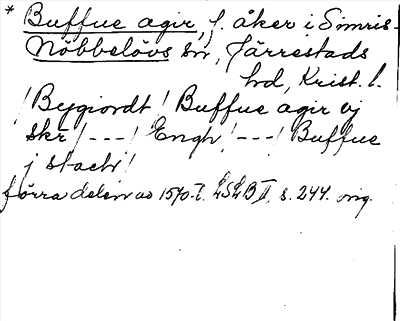 * Buffue agir, f. åker i Simris-
Nöbbelövs sn, Järrestads
hd, Krist. l.
/Bygiordt/ Buffue agir vj
skr /---/ Engh /---/ Buffue
j stack/
förra delen av 1570-t. LSLB II, s. 244. orig.